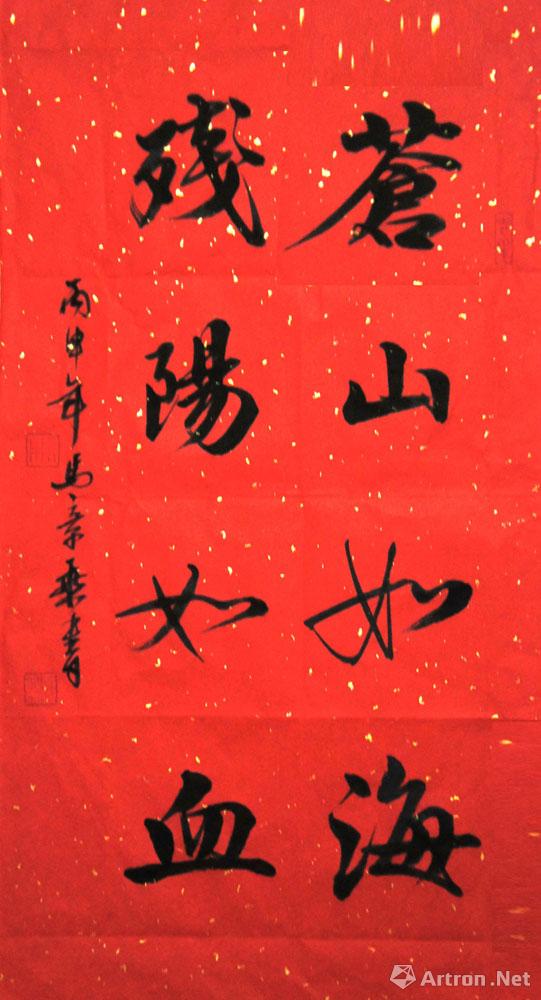 蒼山如海
殘陽如血
丙申年馬景乘書
Artron.Net